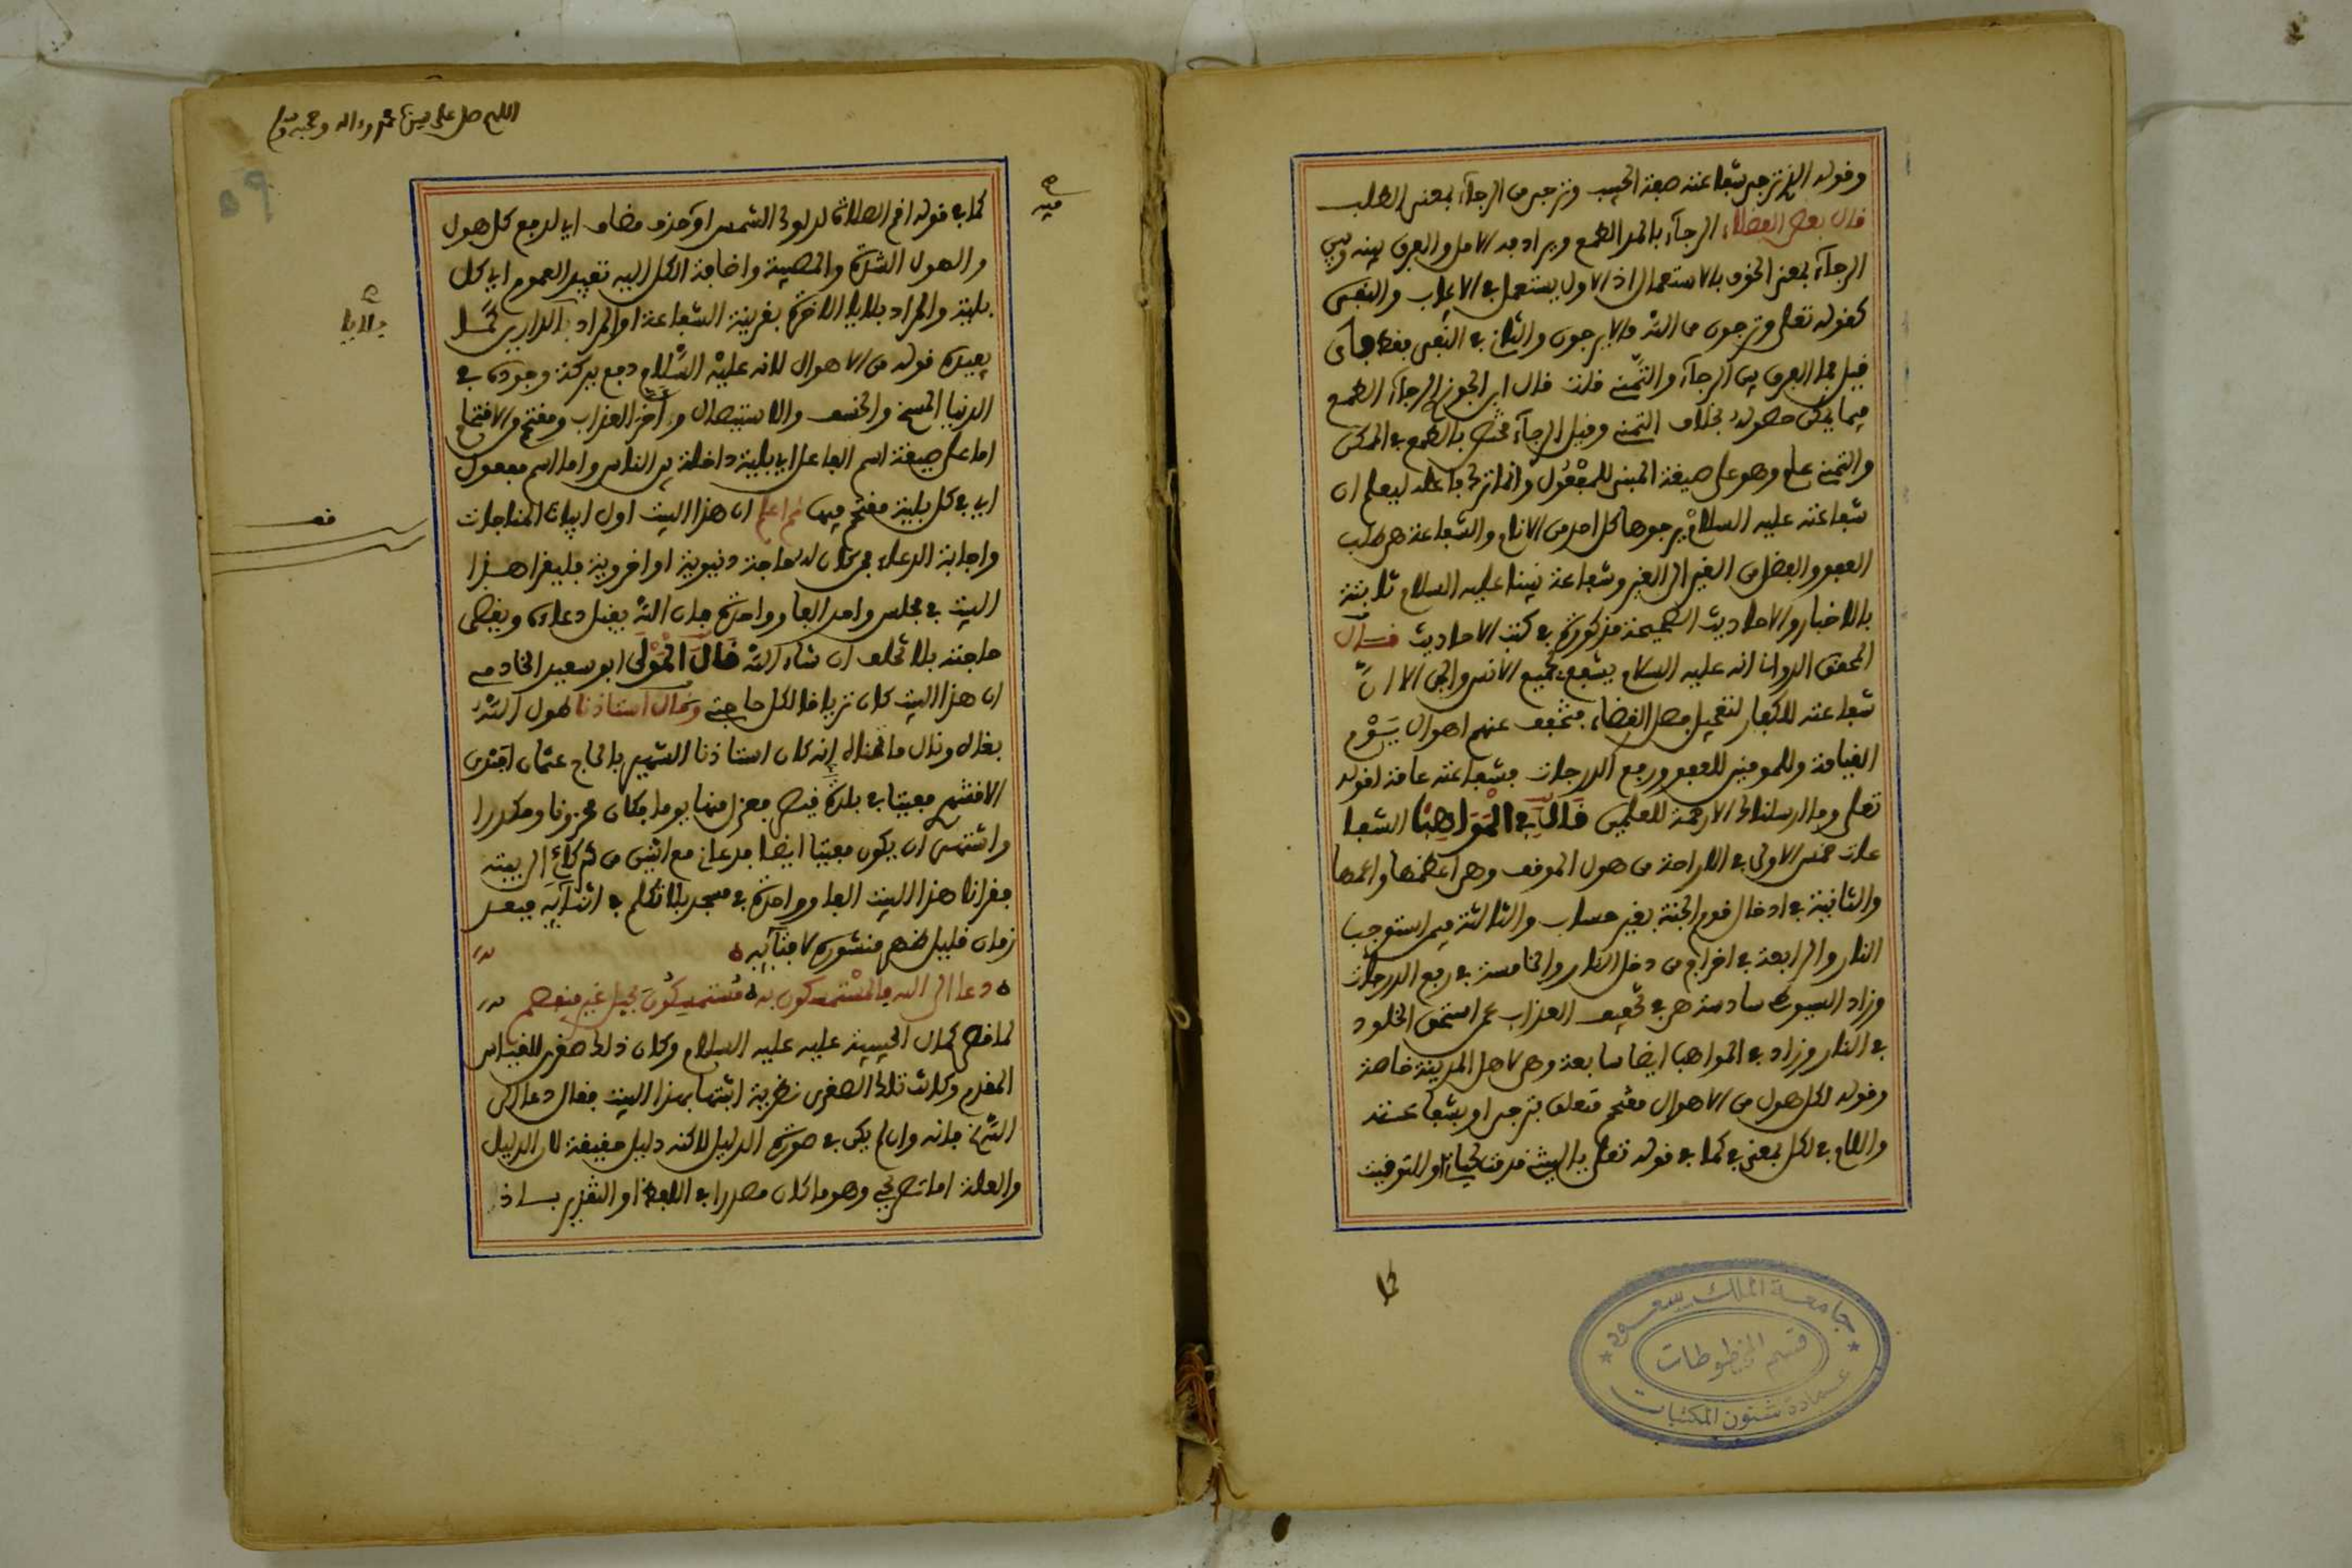 وقوله الذي ترجى شفاعته صفة الحبيب وترجى من الرجاء بمعنى الطلب
قال بعض الفضلاء الرجاء بالمد الطمع ويراد به الامل والفرق بينه وبين
الرجاء بمعنى الخوف بالاستعمال اذ الاول يستعمل في الايجاب والنفي
كقوله تعلى وترجون من الله ما لا يرجون والثاني في النفي فقط فان
قيل فما الفرق بين الرجاء والتمني قلت قال ابن الجوزي الرجاء الطمع
فيما يمكن حصوله بخلاف التمني وقيل الرجاء مختص بالطمع في الممكن
والتمني عام وهو على صيغة المبني للمفعول وانما ترك فاعله ليعلم ان
شفاعته عليه السلام يرجوها كل احد من الانام والشفاعة هي طلب
العفو والفضل من الغير الى الغير وشفاعة نبينا عليه السلام ثابتة
بالاخبار والاحاديث الصحيحة مذكورة في كتب الاحاديث قال
المحقق الدواني انه عليه السلام يشفع لجميع الانس والجن الا ان
شفاعته للكفار لتعجيل فصل القضاء فتخفف عنهم اهوال يوم
القيامة وللمومنين للعفو ورفع الدرجات فشفاعته عامة لقوله
تعلى وما ارسلناك الا رحمة للعلمين قال في المواهب الشفا
عات خمس الاولى في الاراحة من هول الموقف وهي اعظمها واعمها
والثانية في ادخال قوم الجنة بغير حساب والثالثة فيمن استوجب
النار والرابعة في اخراج من دخل النار والخامسة في رفع الدرجات
وزاد السيوطي سادسة هي في تخفيف العذاب عمن استحق الخلود
في النار وزاد في المواهب ايضا سابعة وهي لاهل المدينة خاصة
وقوله لكل هول من الاهوال مقتحم متعلق بترجى او بشفاعته
واللام في لكل بمعنى في كما في قوله تعلى يا ليتني قدمت لحياتي او للتوقيت
كما
جامعة الملك سعود
قسم المخطوطات
عمادة شئون المكتبات
اللهم صل على سيدنا محمد وءاله وصحبه وسلم
٥٩
كما في قوله اقم الصلاة لدلوك الشمس او حذف مضاف اي لدفع كل هول
والهول الشدة والمصيبة واضافة الكل اليه تفيد العموم اي كل
بلية والمراد بلايا الاخرة بقرينة الشفاعة او المراد الدارين كما
يفيده قوله من الاهوال لانه عليه السلام دفع ببركة وجوده في
الدنيا المسخ والخسف والاستيصال واخر العذاب ومقتحم من الاقتحام
اما على صيغة اسم الفاعل اي بلية داخلة بين الناس واما اسم مفعول
اي في كل بلية مقتحم فيها ثم اعلم ان هذا البيت اول ابيات المناجات
واجابة الدعاء فمن كان له حاجة دنيوية او اخروية فليقرا هذا
البيت في مجلس واحد الفا وواحدة فان الله يقبل دعاءه ويقضى
حاجته بلا تخلف ان شاء الله قال المولى ابو سعيد الخادمي
ان هذا البيت كان ترياقا لكل حاجتي وقال استاذنا طول الله
بقاه ونال ما تمناه انه كان استاذنا الشهير بالحاج عثمان افندي
الاقشهري مفتيا في بلدة فعزل منها يوما فكان محزونا ومكدرا
واشتهى ان يكون مفتيا ايضا فدعاني مع اثنين من شركائي الى بيته
فقرانا هذا البيت الفا وواحدة في مسجد بلا تكلم في اثنائه فبعد
زمان قليل ظهر منشوره لافتائه
دعا الى الله فالمستمسكون به مستمسكون بحبل غير منفصم
لما قصر كمال الحبيبية عليه عليه السلام وكان ذلك صغرى للقياس
المقدم وكانت تلك الصغرى نظرية اثبتها بهذا البيت فقال دعا الى
الله فانه وان لم يكن في صورة الدليل لاكنه دليل حقيقة لان الدليل
والعلة اما تصريحي وهو ما كان مصدرا في اللفظ او التقدير باذ
فيه
بلايا
قف